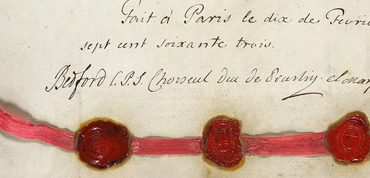 Fait à Paris le dix de Fevri
sept cent soixante trois.
Bedford C.P.S. Choiseul Duc de el marq